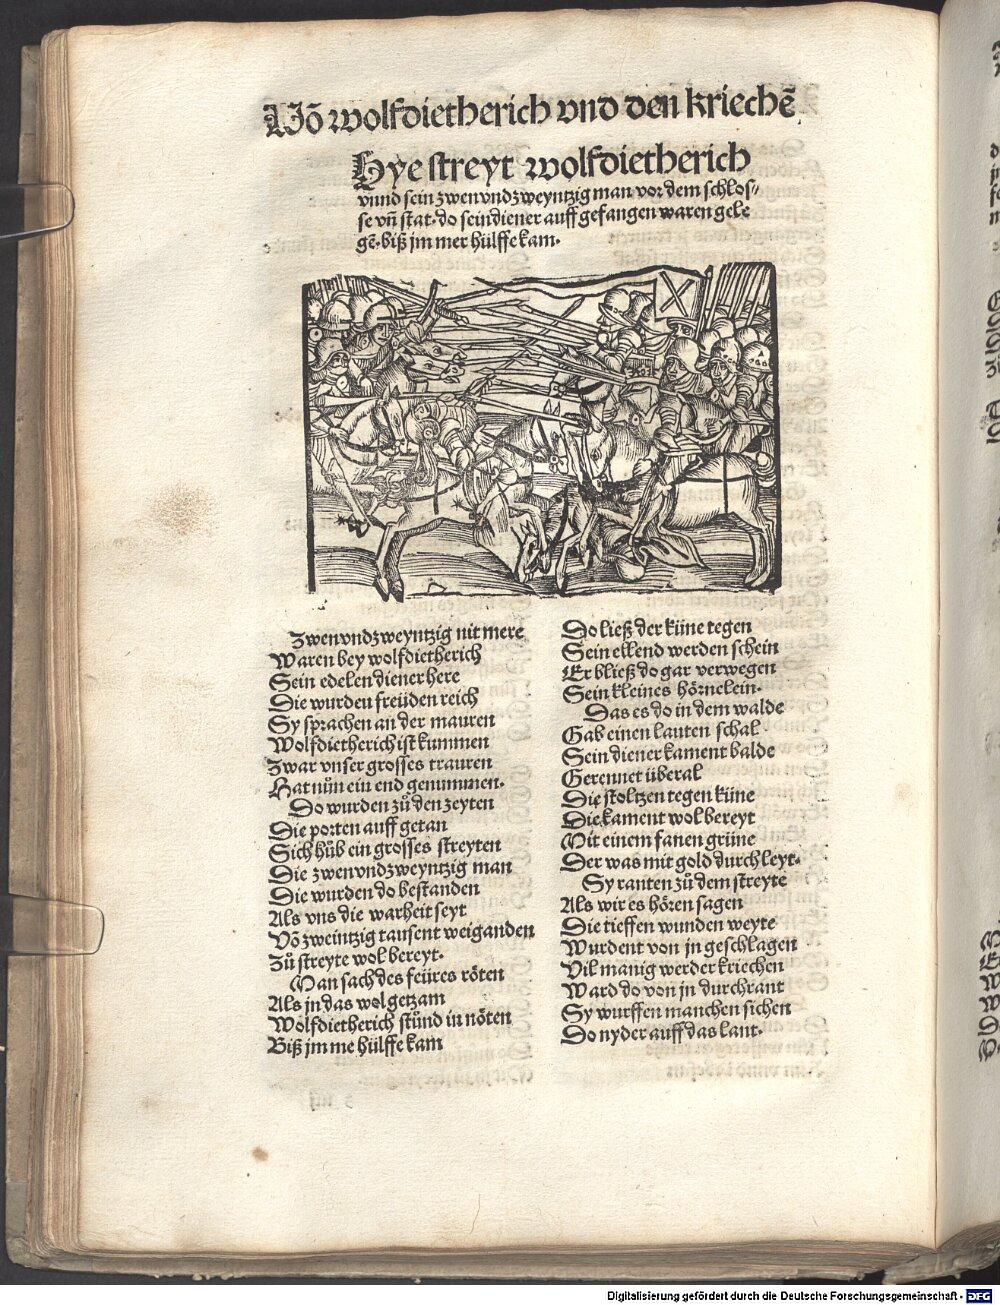 Võ wolfdietherich vnd den kriechẽ
Hye streyt wolfdietherich
vnnd sein zwen vnd zweyntzig man vor dem schlos⸗
se vñ stat. do sein diener auff gefangen waren gele
gẽ. biß jm mer hülffe kam.
Zwen vnd zweyntzig nit mere
Waren bey wolfdietherich
Sein edelen diener here
Die wurden freüden reich
Sy sprachen an der mauren
Wolfdietherich ist kummen
Zwar vnser grosses trauren
Hat nůn ein end genummen.
Do wurden zů den zeyten
Die porten auff getan
Sich hůb ein grosses streyten
Die zwen vnd zweyntzig man
Die wurden do bestanden
Als vns die warheit seyt
Võ zweintzig tausent weiganden
Zů streyte wol bereyt.
Man sach des feüres röten
Als jn das wol getzam
Wolfdietherich stůnd in nöten
Biß jm me hülffe kam
Do ließ der küne tegen
Sein ellend werden schein
Er bließ do gar verwegen
Sein kleines hörnelein.
Das es do in dem walde
Gab einen lauten schal
Sein diener kament balde
Gerennet überal
Die stoltzen tegen küne
Die kament wol bereyt
Mit einem fanen grüne
Der was mit gold durchleyt.
Sy ranten zů dem streyte
Als wir es hören sagen
Die tieffen wunden weyte
Wurdent von jn geschlagen
Vil manig werder kriechen
Ward do von jn durchrant
Sy wurffen manchen sichen
Do nyder auff das lant.
Digitalisierung gefördert durch die Deutsche Forschungsgemeinschaft - DFG